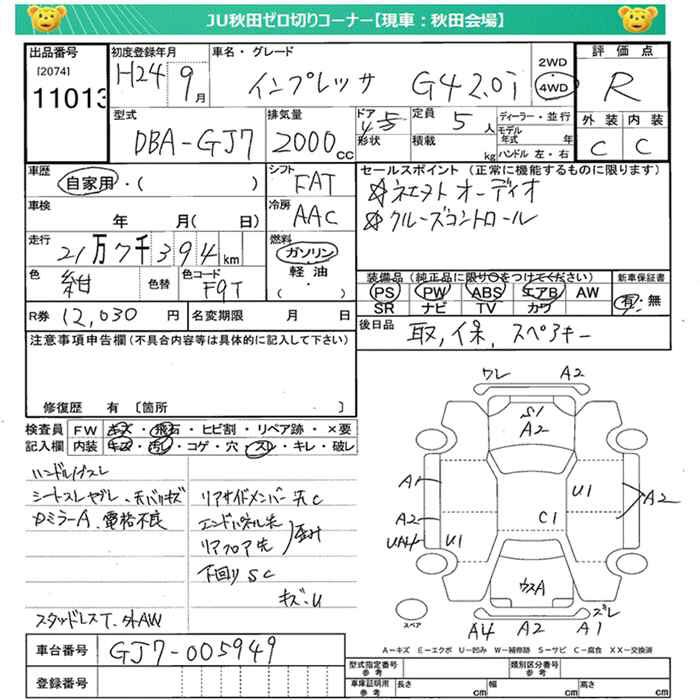 JU秋田ゼロ切りコーナー【現車：秋田会場】
出品番号 [2074] 11013
初度登録年月 H24 9月
車名・グレード インプレッサ G4 2.0i
2WD 4WD
評価点 R
外装 C 内装 C
型式 DBA-GJ7
排気量 2000cc
ドア 形状
定員 5人
積載 kg
ディーラー・並行
モデル年式 年
ハンドル 左・右
車歴 自家用・( )
シフト FAT
冷房 AAC
セールスポイント (正常に機能するものに限ります)
オーディオ
☆クルーズコントロール
車検 年 月 ( 日)
走行 21万7千394km
燃料 ガソリン 軽油 ( ・ )
色 紺 色替
色コード F9T
装備品(純正品に限り○をつけてください)
PS PW ABS エアB AW
SR ナビ TV カワ
新車保証書 有・無
R券 12,030円
名変期限 月 日
後日品 取,保,スペアキー
注意事項申告欄(不具合内容等は具体的に記入して下さい)
修復歴 有 [箇所 ]
検査員記入欄
FW キズ・飛石・ヒビ割・リペア跡・×要
内装 キズ・汚レ・コゲ・穴・スレ・キレ・破レ
ハンドルスレ
シートスレヤブレ
カミラーA、電格不良
リアサイドメンバー先C
エンドパネル先
リアフロア先
下回りSC
キズ・U
スタッドレスT、外AW
ワレ A2
S1
A2
A1
A2
UA4
U1
U1
C1
A2
ウスA
A4 A2 A1
ズレ
スペア
A－キズ E－エクボ U－凹み W－補修跡 S－サビ C－腐食 XX－交換済
車台番号 GJ7-005949
登録番号
型式指定番号 参考
類別区分番号 参考
車庫証明用 参考
長さ cm 幅 cm 高さ cm